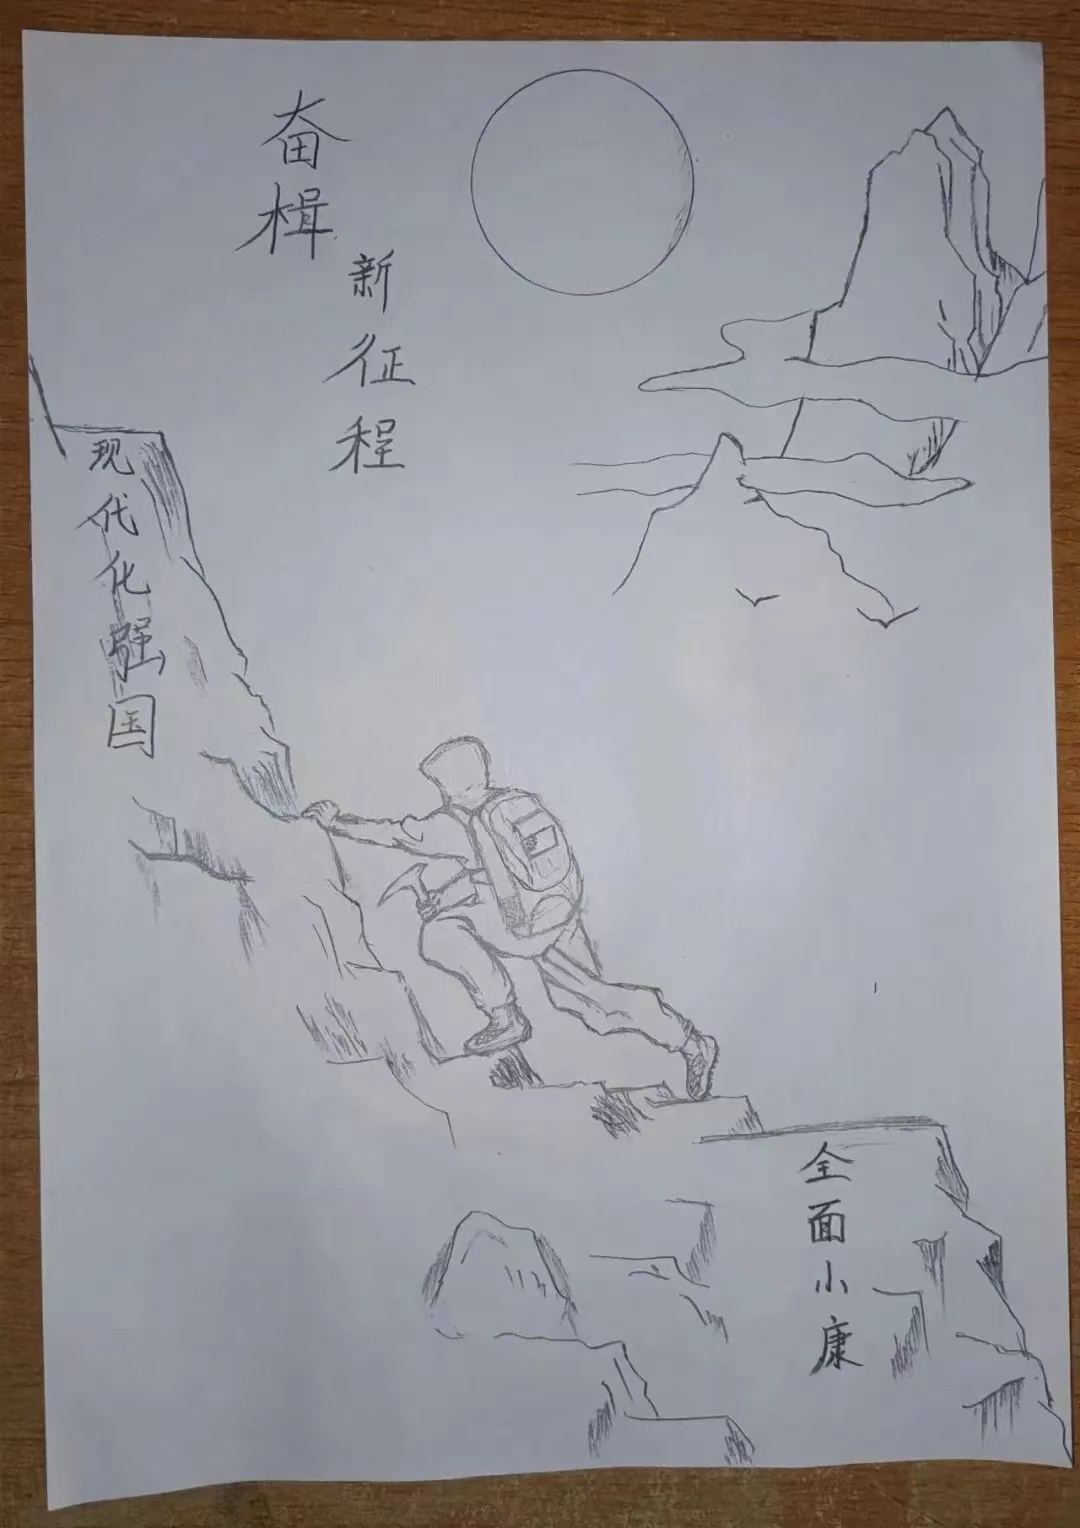 奋楫
新征程
现代化强国
全面小康